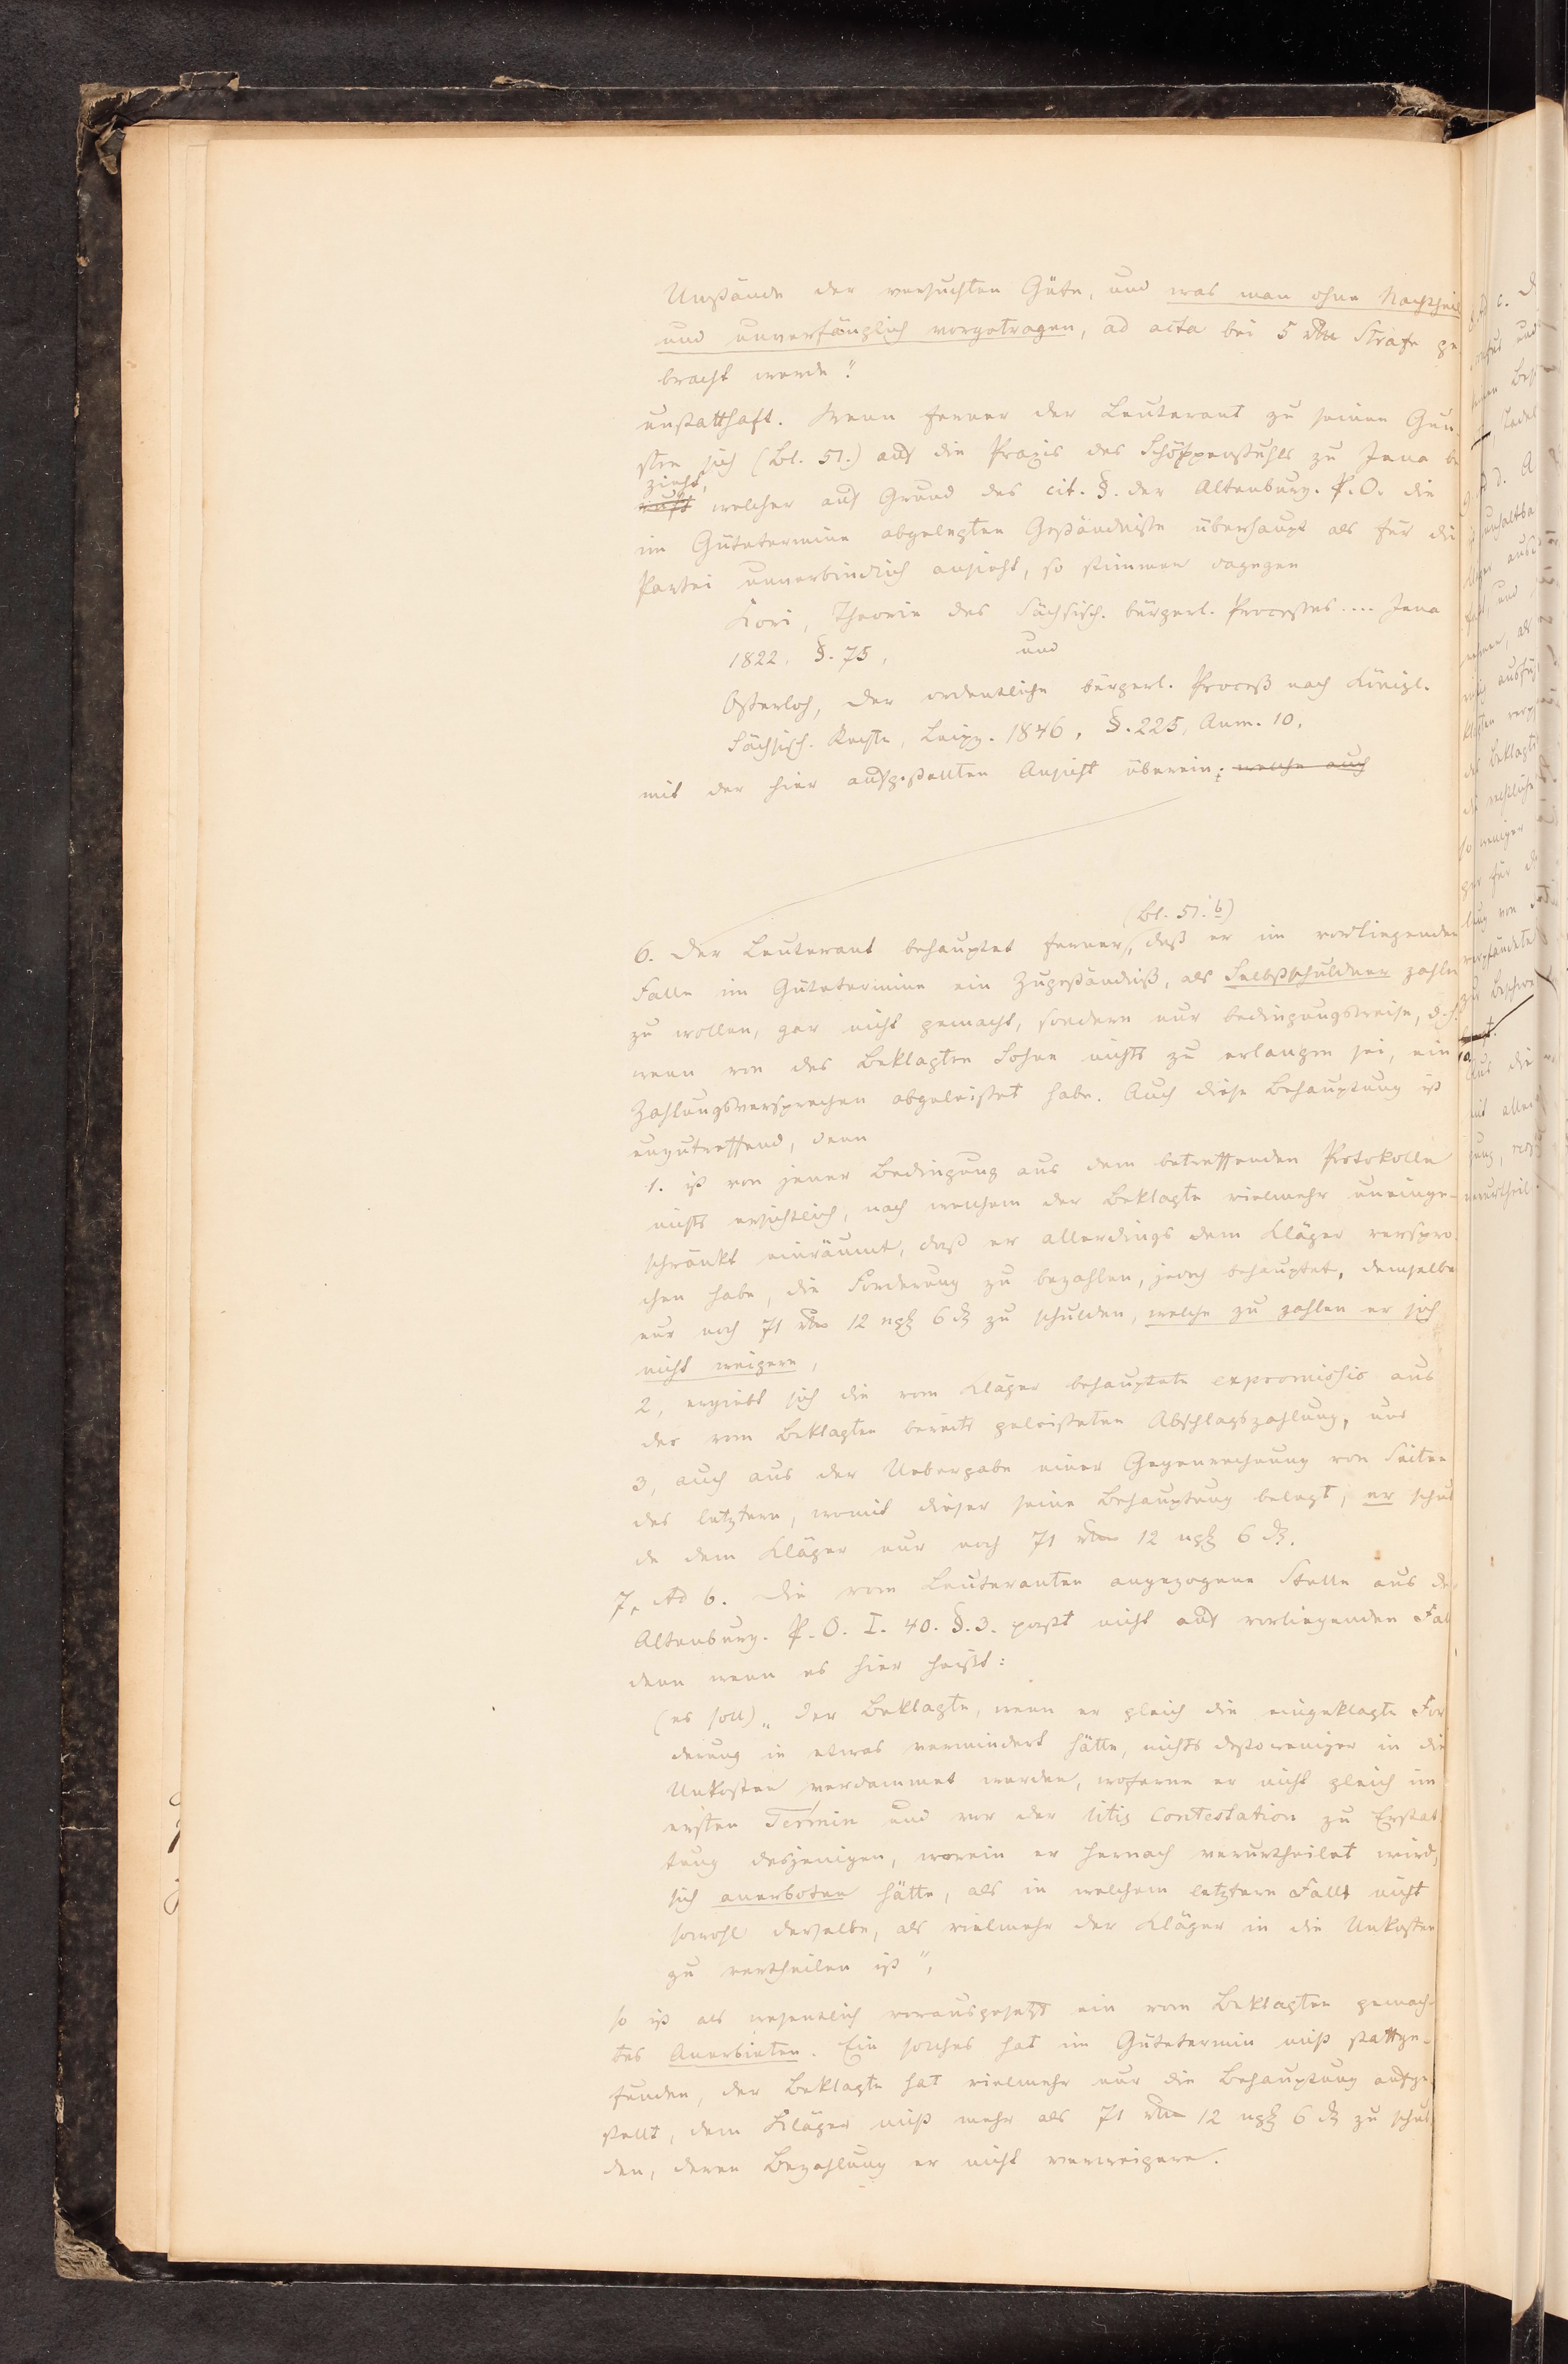 Umstände der versuchten Güte, und was man ohne Nachtheil
und unverfänglich vorgetragen, ad acta bei 5 rthlr Strafe ge-
bracht werde."
unstatthaft. Wenn ferner der Leuterant zu seinen Gun-
sten sich (Bl. 51.) auf die Praxis des Schöppenstuhls zu Jena be
zieht,
ruft welcher auf Grund des cit. §. der Altenburg. P. O. die
im Gütetermine abgelegten Geständnisse überhaupt als für die
Partei unverbindlich ansieht, so stimmen dagegen
Kori, Theorie des Sächsisch. bürgerl. Processes .... Jena
1822, §. 75, und
Osterloh, der ordentliche bürgerl. Proceß nach Königl.
Sächsisch. Rechte, Leipz. 1846, §. 225, Anm. 10,
mit der hier aufgestellten Ansicht überein; welche auch
(Bl. 51. b)
6. Der Leuterant behauptet ferner, daß er im vorliegenden
Falle im Gütetermine ein Zugeständniß, als Selbstschuldner zahlen
zu wollen, gar nicht gemacht, sondern nur bedingungsweise, d. h.
wenn von des Beklagten Sohne nichts zu erlangen sei, ein
Zahlungsversprechen abgeleistet habe. Auch diese Behauptung ist
unzutreffend, denn
1. ist von jener Bedingung aus dem betreffenden Protokolle
nichts ersichtlich, nach welchem der Beklagte vielmehr uneinge-
schränkt einräumt, daß er allerdings dem Kläger verspro-
chen habe, die Forderung zu bezahlen, jedoch behauptet, demselben
nur noch 71 rthlr 12 ngr 6 d zu schulden, welche zu zahlen er sich
nicht weigere,
2, ergiebt sich die vom Kläger behauptete expromissio aus
der vom Beklagten bereits geleisteten Abschlagszahlung, und
3, auch aus der Uebergabe einer Gegenrechnung von Seiten
des letztern, womit dieser seine Behauptung belegt, er schul
de dem Kläger nur noch 71 rthlr 12 ngr 6 d.
7, Ad b. Die vom Leuteranten angezogene Stelle aus der
Altenburg. P. O. I. 40. §. 3. paßt nicht auf vorliegenden Fal
denn wenn es hier heißt:
(es soll) „der Beklagte, wenn er gleich die eingeklagte For
derung in etwas vermindert hätte, nichts destoweniger in die
Unkosten verdammet werden, woferne er nicht gleich im
ersten Termin und vor der litis Contestation zu Erstat
tung desjenigen, worein er hernach verurtheilet wird,
sich anerboten hätte, als in welchem letztern Falle nicht
sowohl derselbe, als vielmehr der Kläger in die Unkosten
zu vertheilen ist",
so ist als wesentlich vorausgesetzt ein vom Beklagten gemach-
tes Anerbieten. Ein solches hat im Gütetermin nicht stattge-
funden, der Beklagte hat vielmehr nur die Behauptung aufge-
stellt, dem Kläger nicht mehr als 71 rthlr 12 ngr 6 d zu schul
den, deren Bezahlung er nicht verweigere.